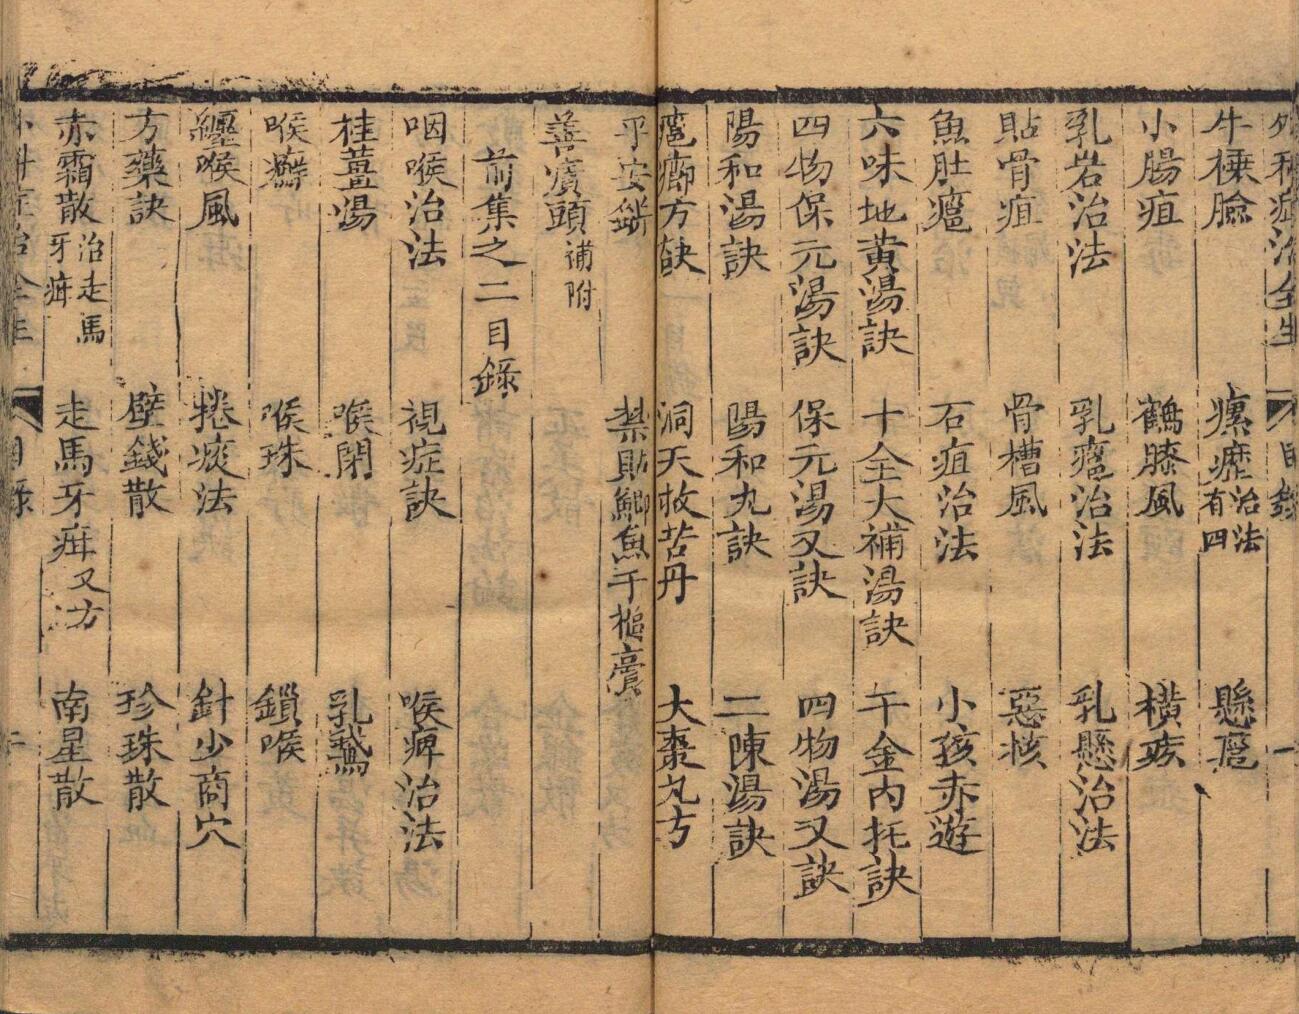 外科症治全生 目錄 一
牛㯶臉 瘰癧治法有四 懸癰
小腸疽 鶴膝風 橫痃
乳岩治法 乳癰治法 乳懸治法
貼骨疽 骨槽風 惡核
魚肚癰 石疽治法 小孩赤遊
六味地黄湯訣 十全大補湯訣 千金內托訣
四物保元湯訣 保元湯又訣 四物湯又訣
陽和湯訣 陽和丸訣 二陳湯訣
瘡癤方訣 洞天救苦丹 大棗丸方
平安餅 紮貼鯽魚千槌膏
善瘡頭補附
前集之二目錄
咽喉治法 視症訣 喉痺治法
桂薑湯 喉閉 乳鵞
喉癬 喉珠 鎖喉
纏喉風 捲痰法 針少商穴
方藥訣 壁錢散 珍珠散
赤霜散治走馬牙疳 走馬牙疳又方 南星散
外科症治全生 目錄 二